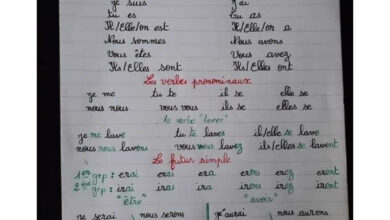 je suis j'ai
tu es tu as
Il/Elle/on est Il/Elle/on a
Nous sommes Nous avons
Vous êtes Vous avez
Ils/Elles sont Ils/Elles ont
Les verbes pronominaux
je me tu te il se elle se
nous nous vous vous ils se elles se
le verbe "laver"
je me lave tu te laves il/elle se lave
nous nous lavons vous vous lavez ils/elles se lavent
Le futur simple
1er grp : erai eras era erons erez eront
2ème grp : irai iras ira irons irez iront
"être" "avoir"
je serai nous serons j'aurai nous aurons